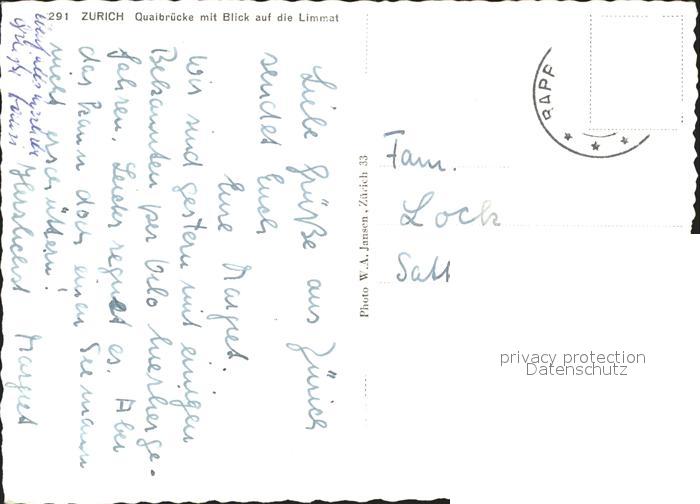 291 ZURICH Quaibrücke mit Blick auf die Limmat
Liebe Grüße aus Zürich
sendet Euch
Eure Margret.
Wir sind gestern mit einigen
Bekannten per Velo hierherge-
fahren. Leider regnet es. Aber
das kann doch einen Seemann
nicht erschüttern!
Herzlichst Margret
Photo W. A. Jansen, Zürich 33
RAPP
Fam.
Lock
privacy protection
Datenschutz